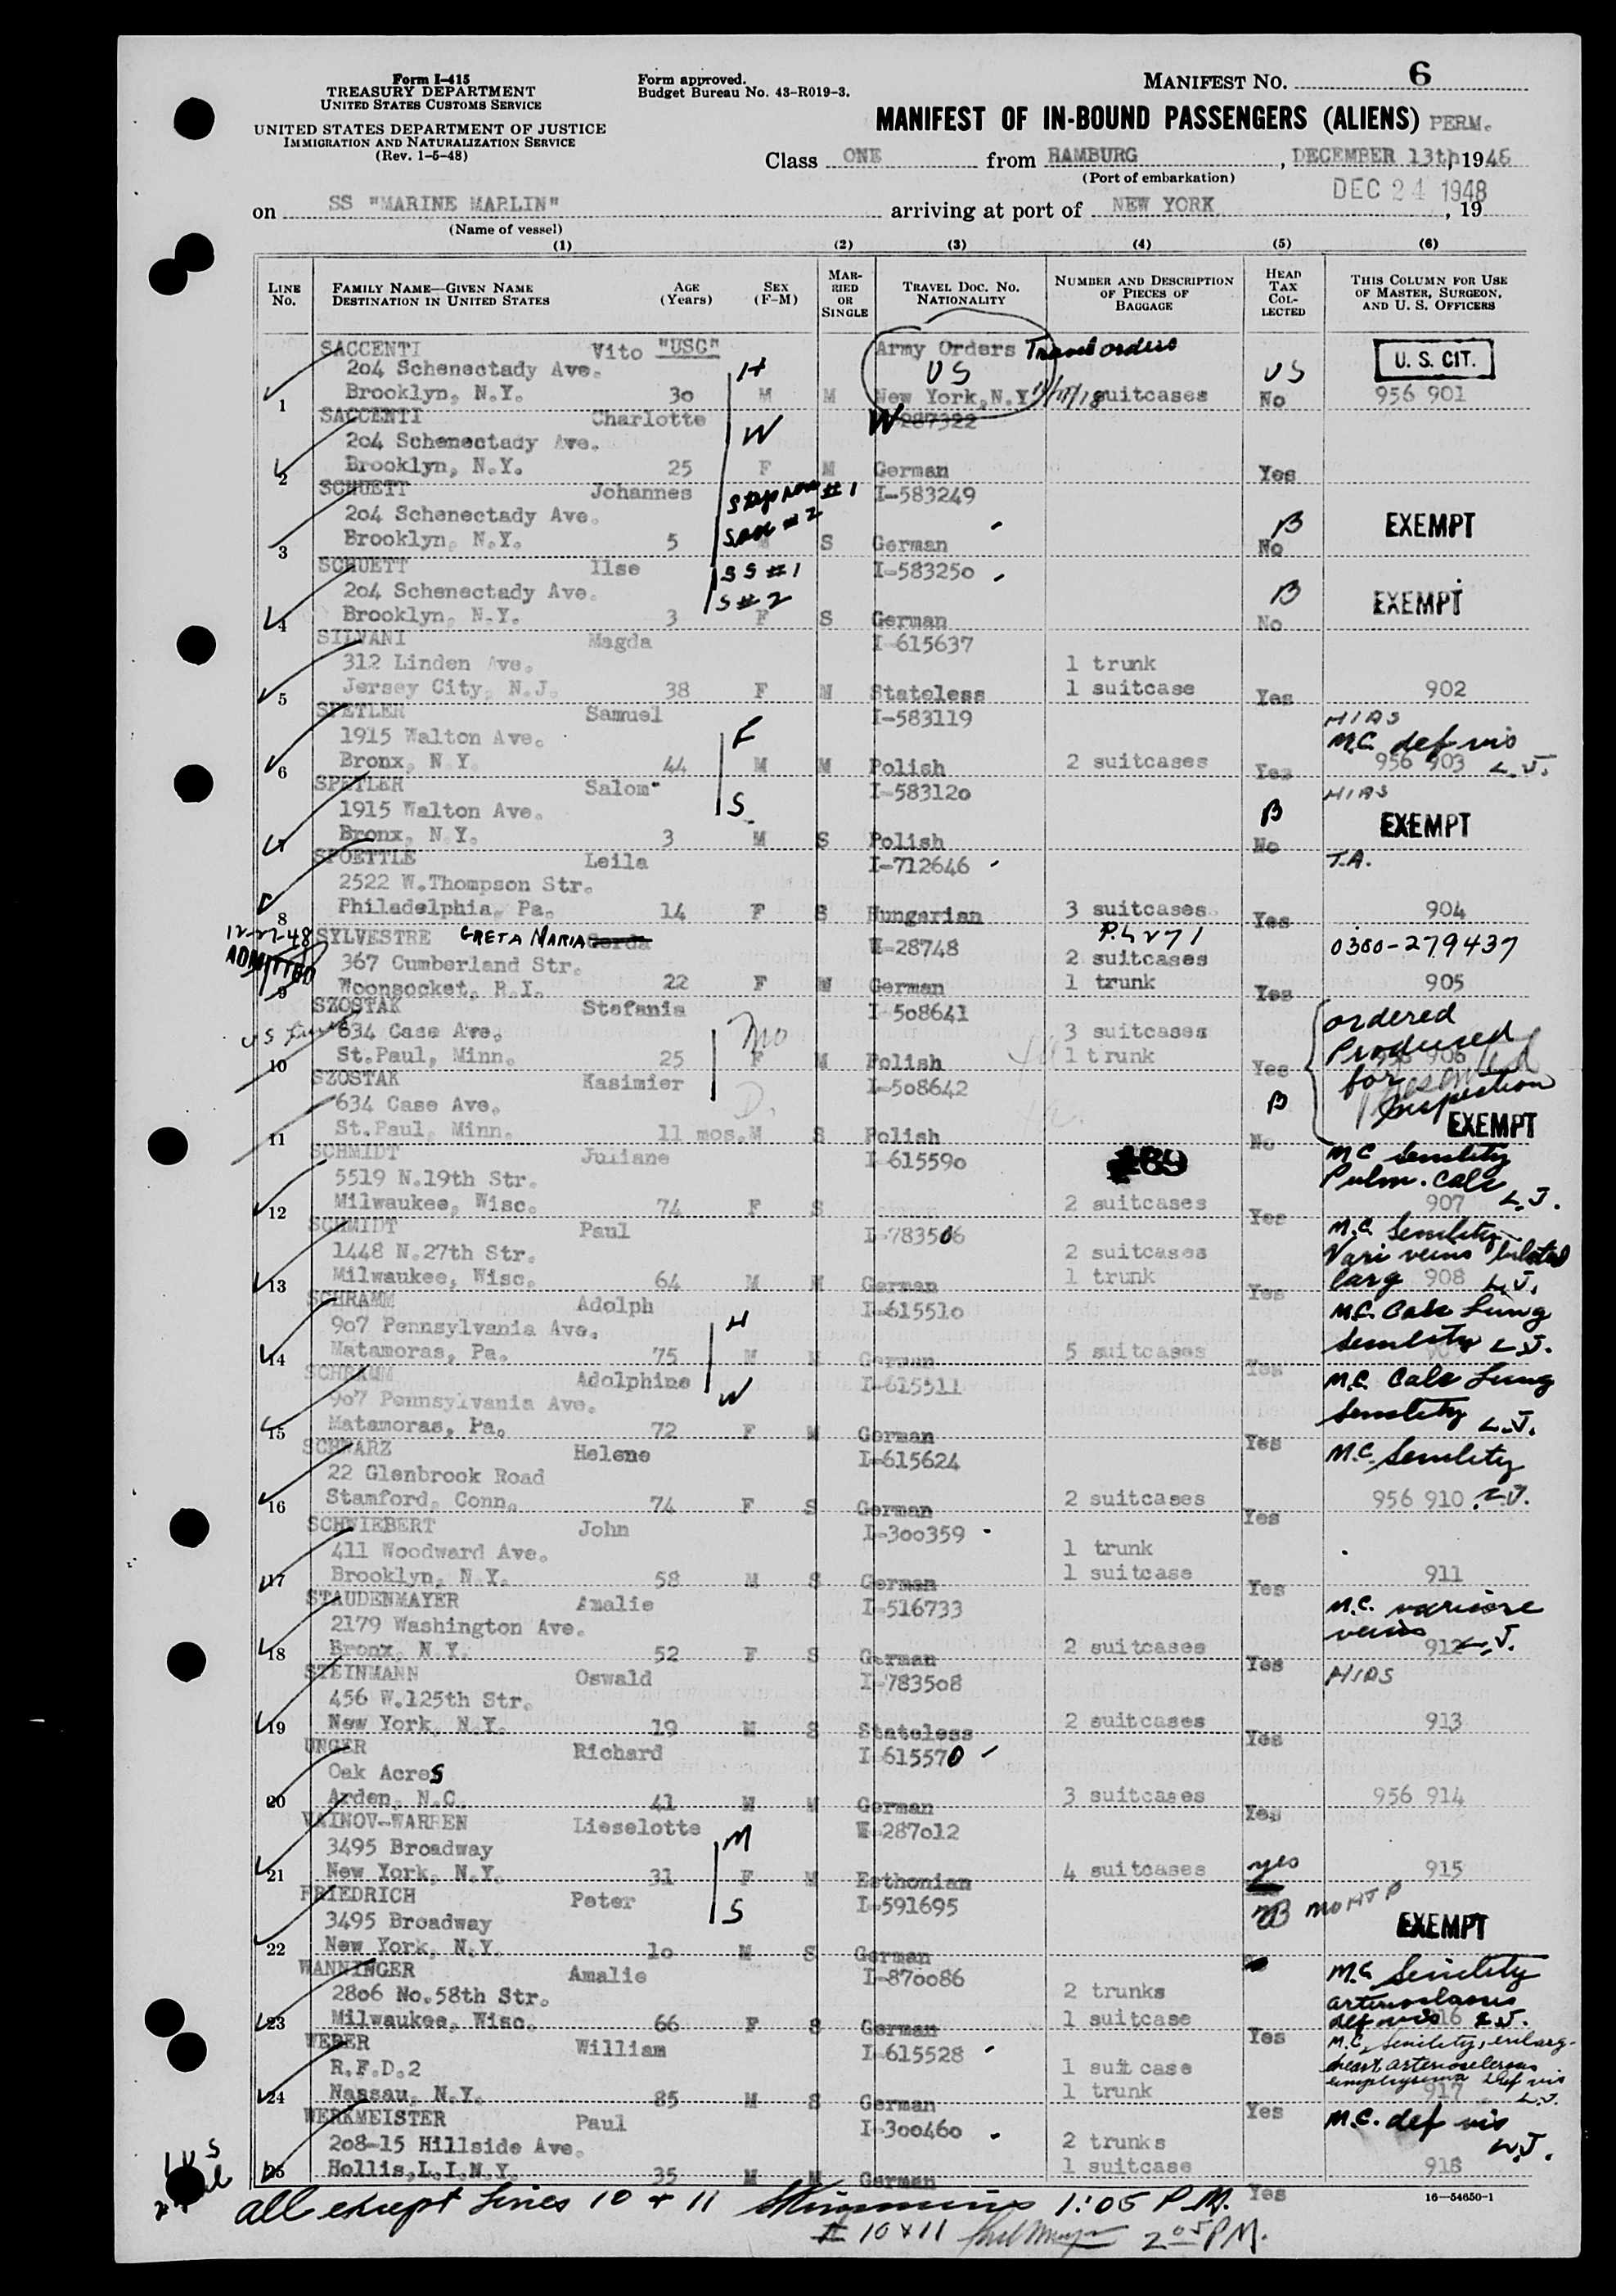 Form I-415
TREASURY DEPARTMENT
UNITED STATES CUSTOMS SERVICE
UNITED STATES DEPARTMENT OF JUSTICE
IMMIGRATION AND NATURALIZATION SERVICE
(Rev. 1-5-48)
Form approved.
Budget Bureau No. 43-R019-3.
MANIFEST NO. 6
MANIFEST OF IN-BOUND PASSENGERS (ALIENS) PERM.
Class ONE from HAMBURG, DECEMBER 13th, 1948
(Port of embarkation)
DEC 24 1948
on SS "MARINE MARLIN" arriving at port of NEW YORK, 19
(Name of vessel)
(1) (2) (3) (4) (5) (6)
LINE NO. FAMILY NAME—GIVEN NAME DESTINATION IN UNITED STATES AGE (Years) SEX (F-M) MARRIED OR SINGLE TRAVEL DOC. NO. NATIONALITY NUMBER AND DESCRIPTION OF PIECES OF BAGGAGE HEAD TAX COLLECTED THIS COLUMN FOR USE OF MASTER, SURGEON, AND U. S. OFFICERS
SACCENTI Vito "USC" Army Orders Travel orders U. S. CIT.
204 Schenectady Ave. H US US
1 Brooklyn, N.Y. 30 M M New York, N.Y. suitcases No 956 901
SACCENTI Charlotte W 287322
204 Schenectady Ave. W
2 Brooklyn, N.Y. 25 F M German Yes
SCHUETT Johannes Step son #1 I-583249
204 Schenectady Ave. Son #2 B EXEMPT
3 Brooklyn, N.Y. 5 S German No
SCHUETT Ilse SS #1 I-583250
204 Schenectady Ave. S #2 B EXEMPT
4 Brooklyn, N.Y. 3 F S German No
SILVANI Magda I-615637
312 Linden Ave. 1 trunk
5 Jersey City, N.J. 38 F M Stateless 1 suitcase Yes 902
SPETLER Samuel I-583119 HIAS
1915 Walton Ave. F M.C. def vis
6 Bronx, N.Y. 44 M M Polish 2 suitcases Yes 956 903 L.J.
SPETLER Salom I-583120 HIAS
1915 Walton Ave. S B EXEMPT
7 Bronx, N.Y. 3 M S Polish No
SPOETTLE Leila I-712646 T.A.
2522 W.Thompson Str.
8 Philadelphia, Pa. 14 F S Hungarian 3 suitcases Yes 904
12-27-48 SYLVESTRE GRETA MARIA Gerda I-28748 0300-279437
ADMITTED 367 Cumberland Str. 2 suitcases
9 Woonsocket, R.I. 22 F M German 1 trunk Yes 905
SZOSTAK Stefania I-508641 ordered
634 Case Ave. Mo 3 suitcases Produced
10 St.Paul, Minn. 25 F M Polish 1 trunk Yes 906 for
SZOSTAK Kasimier I-508642 Inspection
634 Case Ave. D. B EXEMPT
11 St.Paul, Minn. 11 mos. M S Polish No
SCHMIDT Juliane I-615590 M.C Senility
5519 N.19th Str. Pulm. Calc
12 Milwaukee, Wisc. 74 F S 2 suitcases Yes 907 L.J.
SCHMIDT Paul I-783506 M.C. Senility
1448 N.27th Str. 2 suitcases Vari veins
13 Milwaukee, Wisc. 64 M M German 1 trunk Yes 908 L.J.
SCHRAMM Adolph I-615510 M.C. Calc Lung
907 Pennsylvania Ave. H Senility L.J.
14 Matamoras, Pa. 75 M M German 5 suitcases Yes
SCHRAMM Adolphine I-615511 M.C. Calc Lung
907 Pennsylvania Ave. W Senility L.J.
15 Matamoras, Pa. 72 F M German Yes
SCHWARZ Helene I-615624 M.C. Senility
22 Glenbrook Road
16 Stamford, Conn. 74 F S German 2 suitcases Yes 956 910 L.J.
SCHWIEBERT John I-300359
411 Woodward Ave. 1 trunk
17 Brooklyn, N.Y. 58 M S German 1 suitcase Yes 911
STAUDENMAYER Amalie I-516733 M.C. varicose
2179 Washington Ave. veins
18 Bronx, N.Y. 52 F S German 2 suitcases Yes 912 L.J.
STEINMANN Oswald I-783508 HIAS
456 W.125th Str.
19 New York, N.Y. 19 M S Stateless 2 suitcases Yes 913
UNGER Richard I-615570
Oak Acres
20 Arden, N.C. 41 M M German 3 suitcases Yes 956 914
VAINOV-WARREN Lieselotte I-287012
3495 Broadway M
21 New York, N.Y. 31 F M Esthonian 4 suitcases yes 915
FRIEDRICH Peter I-591695
3495 Broadway S B EXEMPT
22 New York, N.Y. 10 M S German
WANNINGER Amalie I-870086 M.C. Senility
2806 No.58th Str. 2 trunks
23 Milwaukee, Wisc. 66 F S German 1 suitcase Yes def vis L.J.
WEBER William I-615528 M.C. Senility, enlarg.
R.F.D.2 1 suit case heart arteriosclerosis
24 Nassau, N.Y. 85 M S German 1 trunk Yes emphysema def vis 917 L.J.
WERKMEISTER Paul I-300460 M.C. def vis
208-15 Hillside Ave. 2 trunks L.J.
25 Hollis,L.I.N.Y. 35 M M German 1 suitcase Yes 918
16—54650-1
all except Lines 10 + 11 1:05 P.M.
# 10 + 11 2 05 P.M.